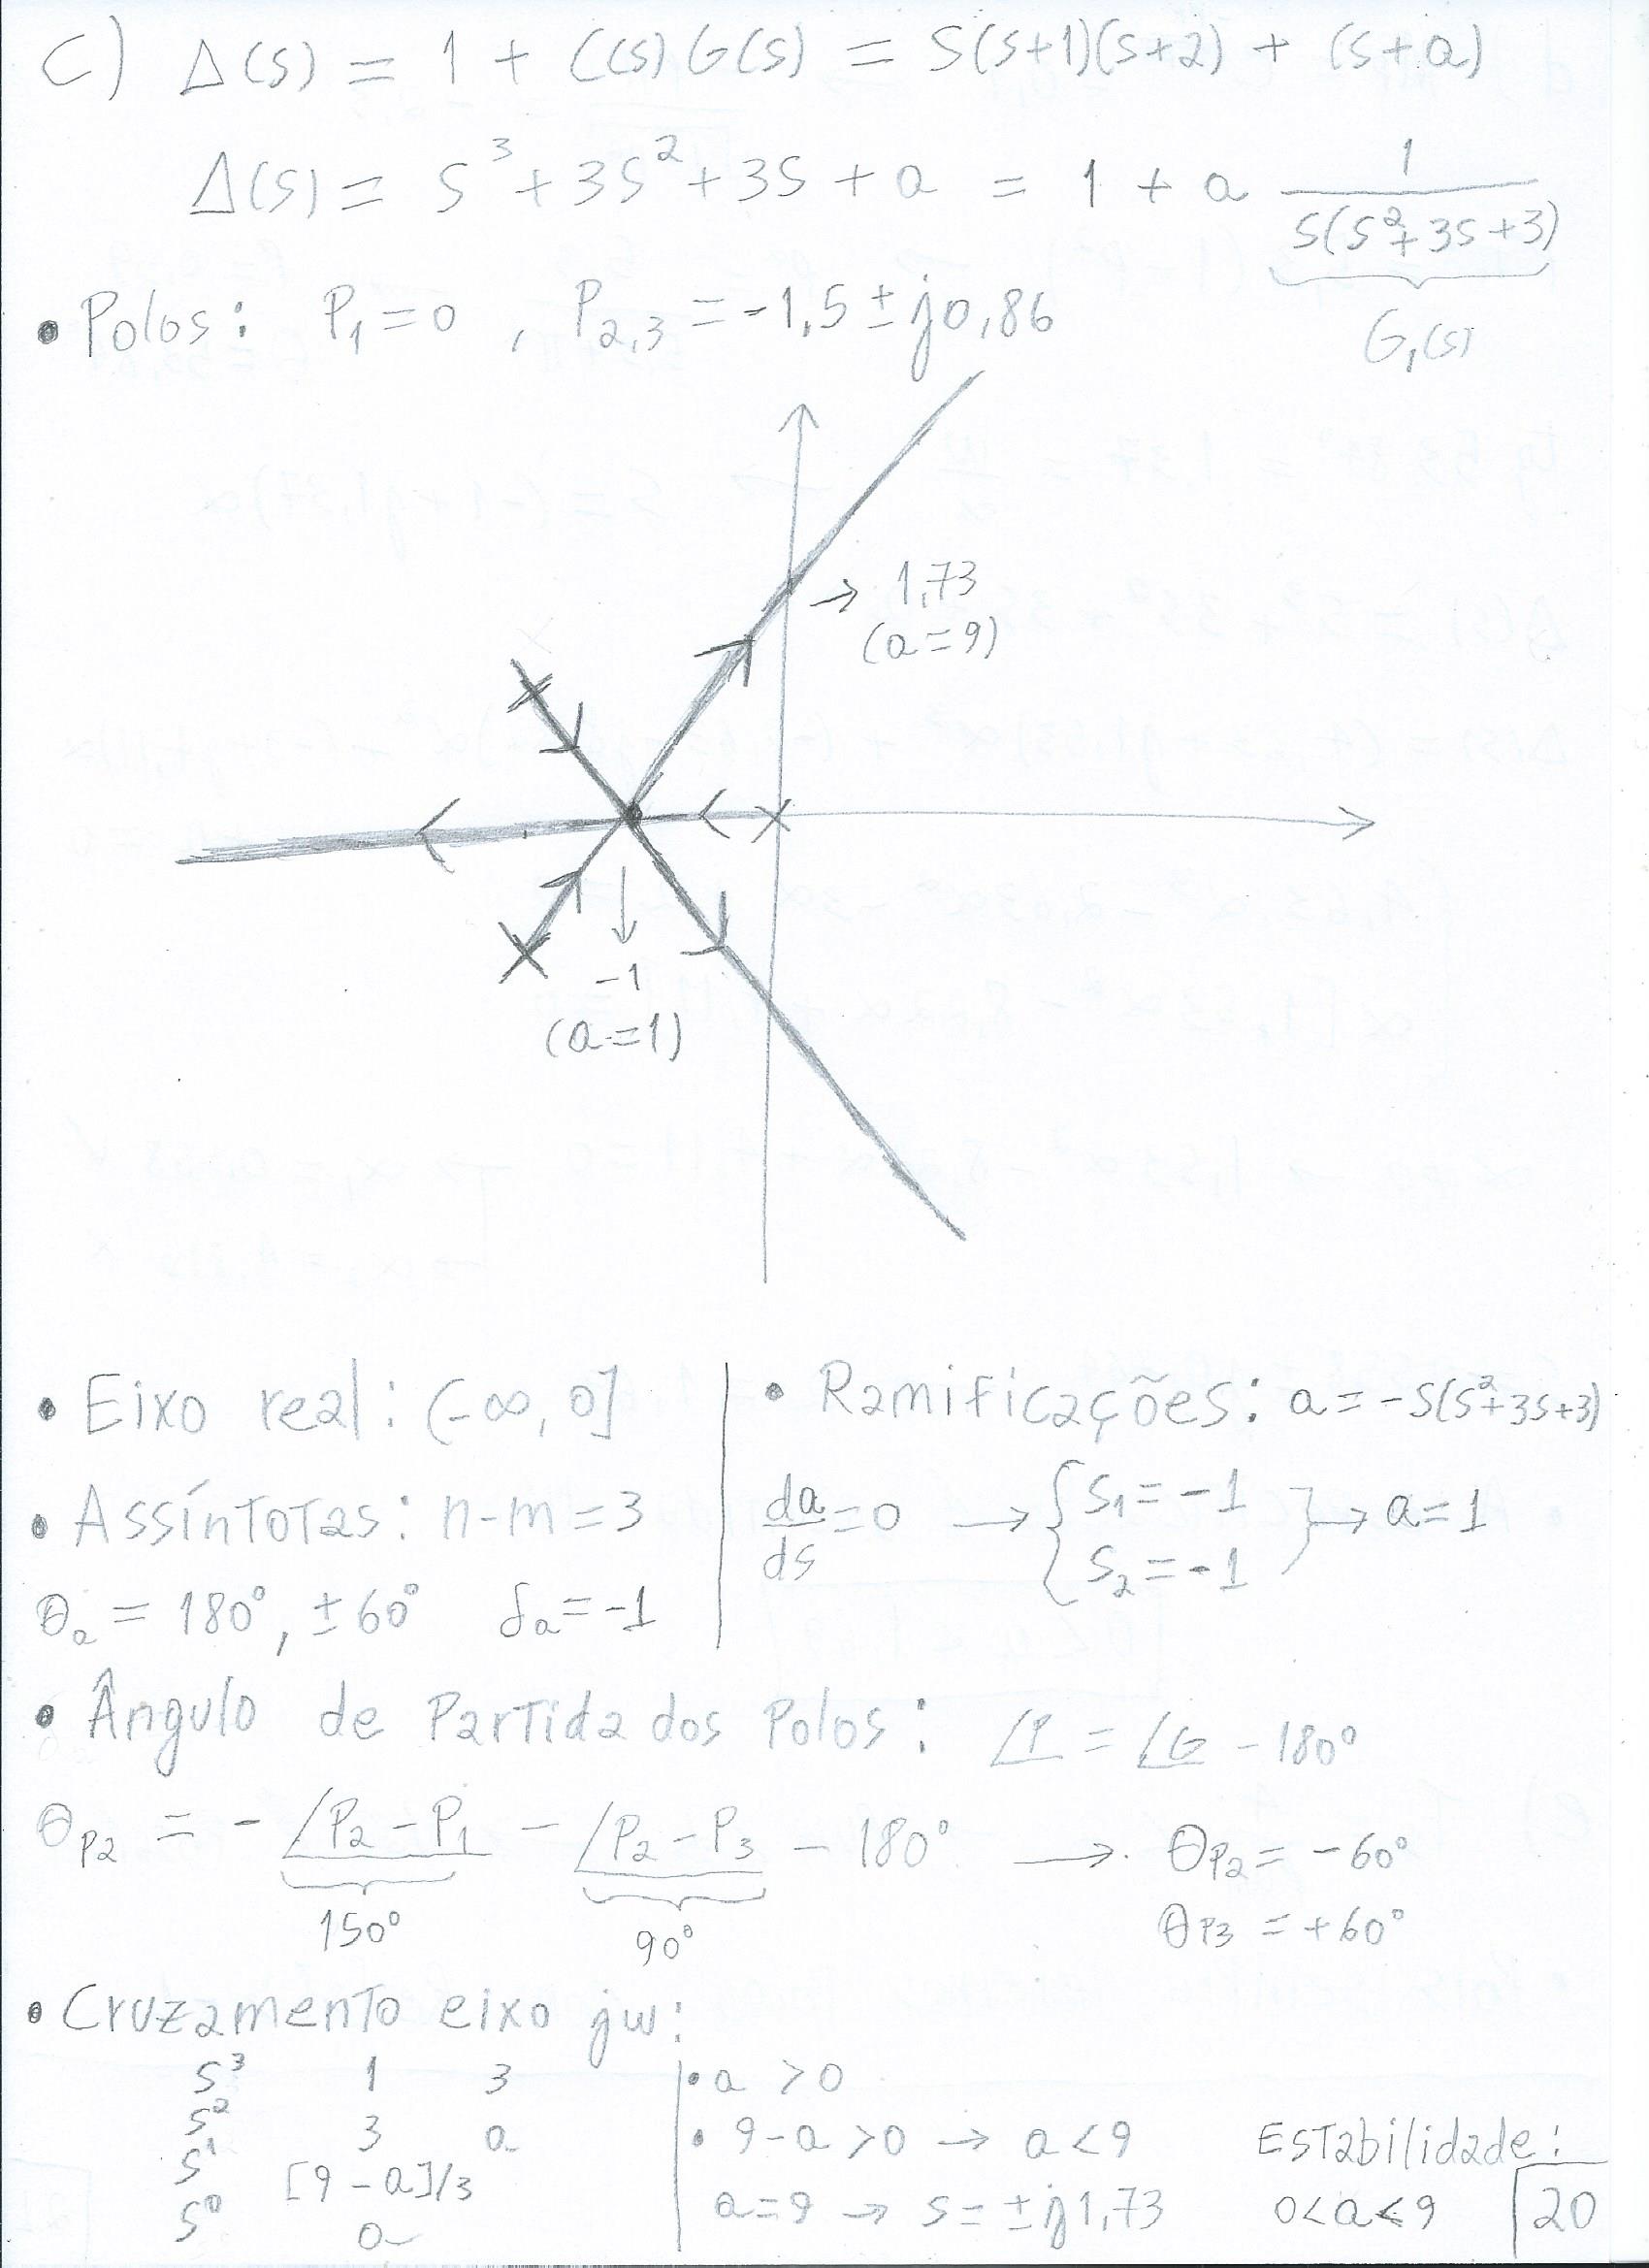 C) Δ(s) = 1 + C(s) G(s) = S(s+1)(s+2) + (s+a)
Δ(s) = S³ + 3S² + 3S + a = 1 + a 1/S(S²+3S+3)
G₁(s)
• Polos: P₁=0 , P₂,₃ = -1,5 ± j0,86
→ 1,73
(a=9)
-1
(a=1)
• Eixo real: (-∞, 0]
• Assíntotas: n-m=3
θa = 180°, ±60° δa=-1
• Ramificações: a=-S(S²+3S+3)
da/ds=0 → { S₁=-1 S₂=-1 } → a=1
• Ângulo de Partida dos Polos: ∠P = ∠G - 180°
θP2 = - ∠P₂-P₁ - ∠P₂-P₃ - 180° → θP2 = -60°
150° 90° θP3 = +60°
• Cruzamento eixo jw:
S³ 1 3
S² 3 a
S¹ [9-a]/3
S⁰ a
• a > 0
• 9-a >0 → a<9
a=9 → S= ±j1,73
Estabilidade:
0<a<9
20